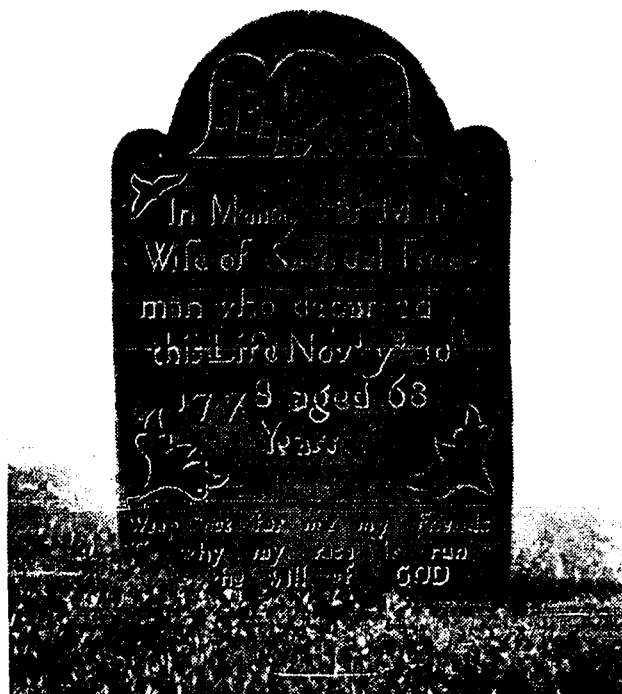 In
Wife of Samuel Free
man who departed
this Life Novr ye 10th
1778 aged 68
Years
Weep not for me my Friends
why my race is run
the will of GOD